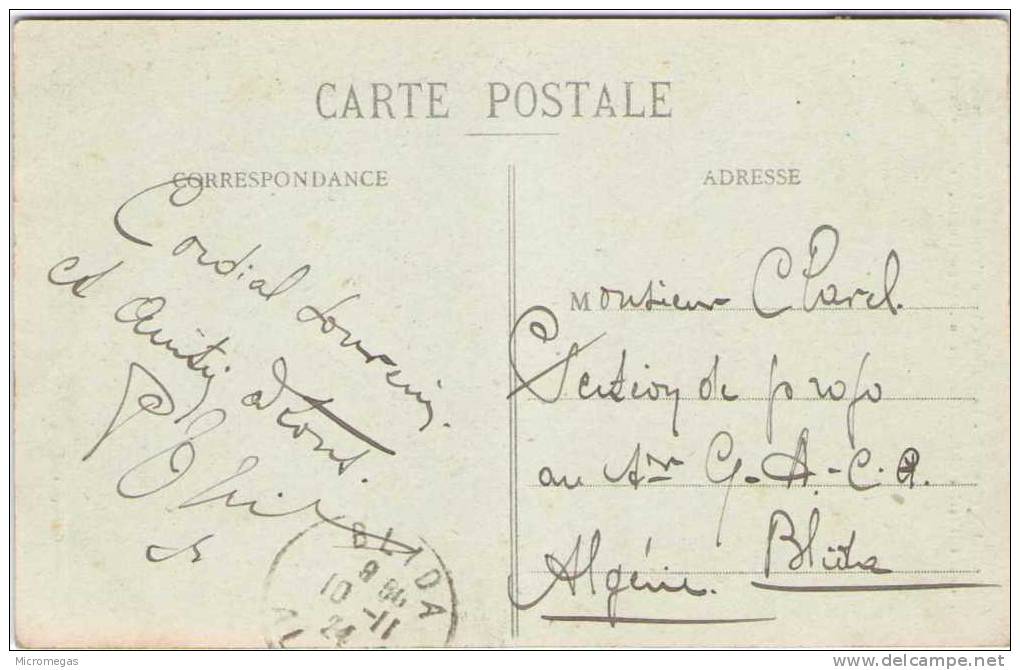 CARTE POSTALE
CORRESPONDANCE
Cordial souvenir
et amitiés à tous.
ADRESSE
Monsieur Clarel.
Section de
au G.A.C.A.
Blida
Algérie
BLIDA
10-11
24
Micromegas
delcampe.net